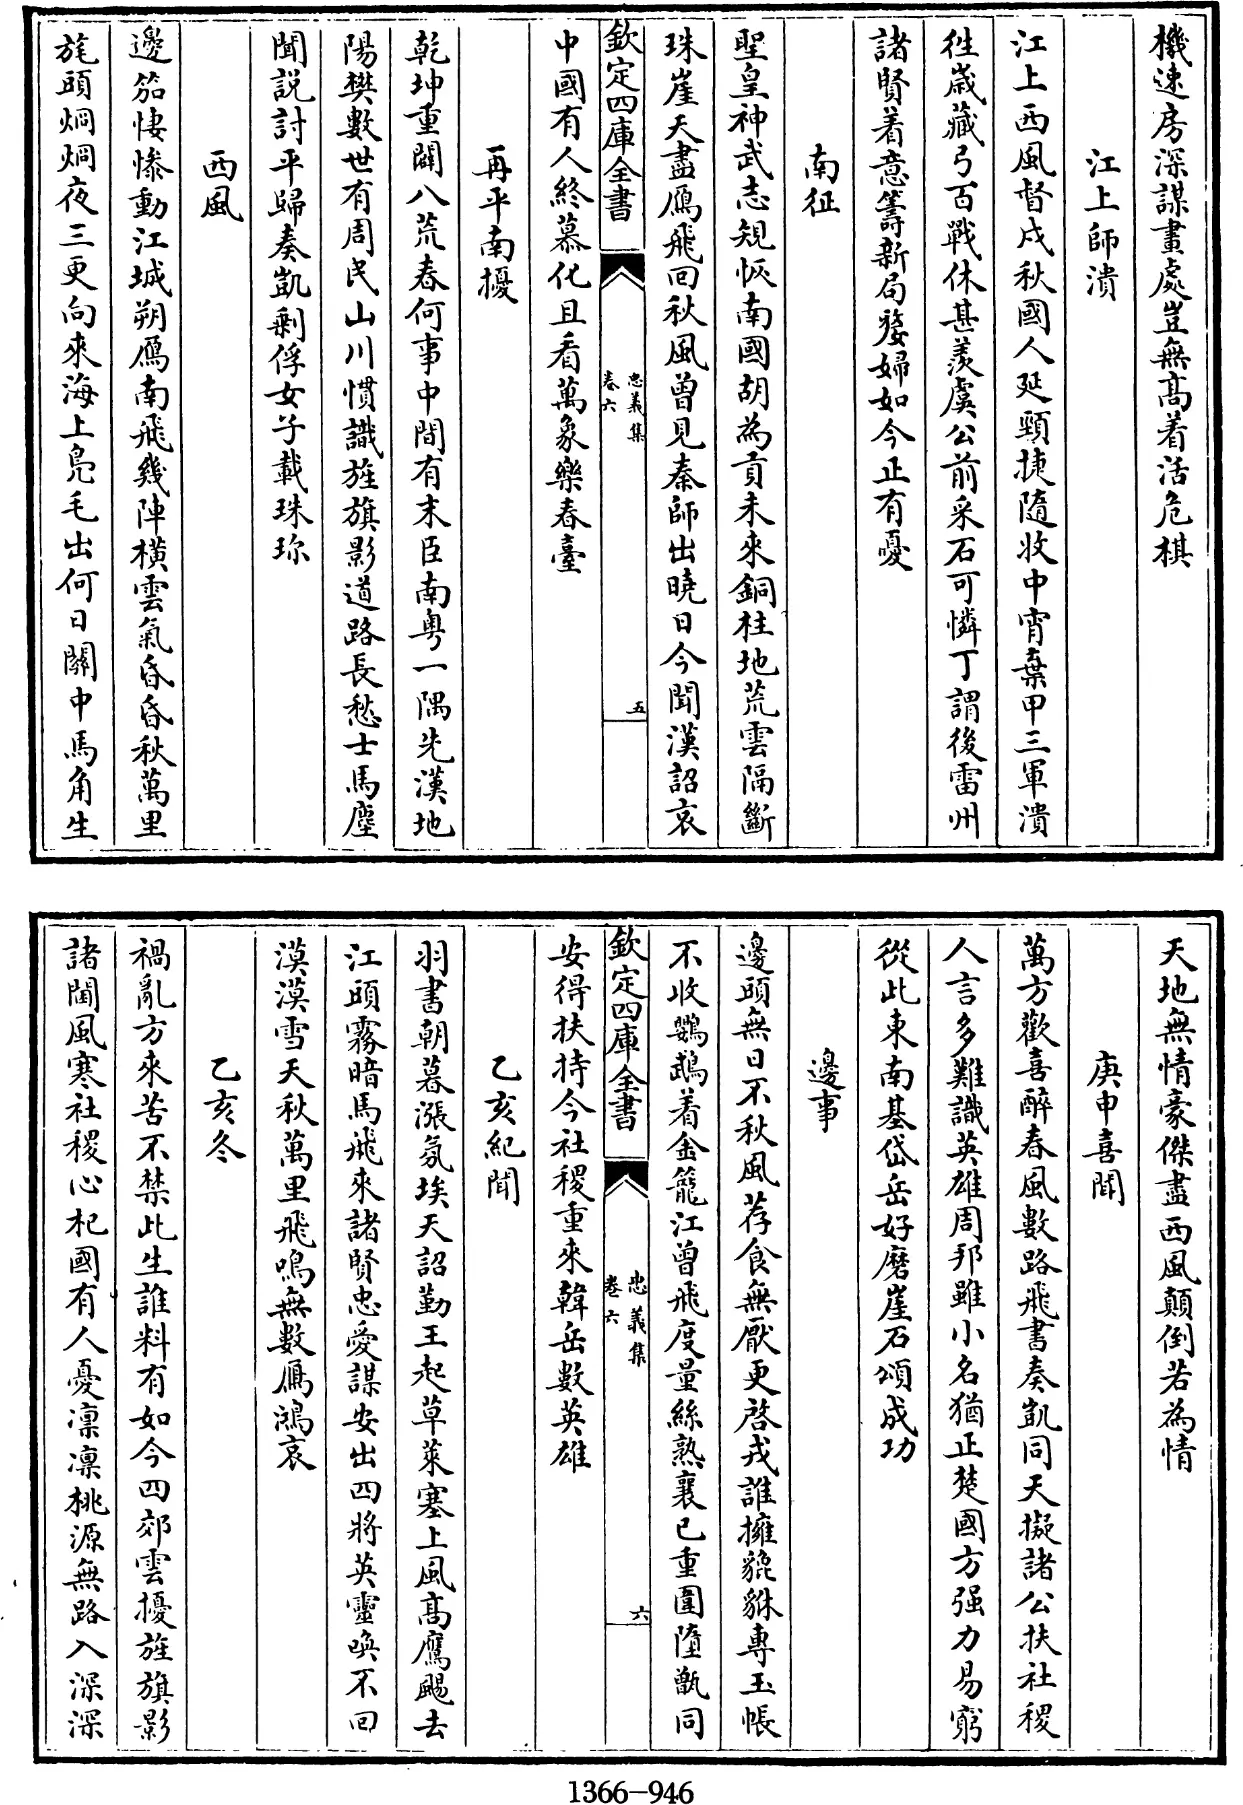 機速房深謀畫處豈無髙着活危棋
江上師潰
江上西風督戍秋國人延頸捷隨收中宵棄甲三軍潰
徃歳藏弓百戰休甚羡虞公前采石可憐丁謂後雷州
諸賢着意籌新局嫠婦如今正有憂
南征
聖皇神武志規恢南國胡為貢未來銅柱地荒雲隔斷
珠崖天盡鴈飛回秋風曾見秦師出曉日今聞漢詔哀
欽定四庫全書
忠義集
卷六
五
中國有人終慕化且看萬象樂春臺
再平南擾
乾坤重闢八荒春何事中間有末臣南粤一隅先漢地
陽樊數世有周民山川慣識旌旗影道路長愁士馬塵
聞説討平歸奏凱剩俘女子載珠珎
西風
邊笳悽惨動江城朔鴈南飛幾陣横雲氣昏昏秋萬里
旄頭烱烱夜三更向來海上鳬毛出何日關中馬角生
天地無情豪傑盡西風顛倒若為情
庚申喜聞
萬方歡喜醉春風數路飛書奏凱同天擬諸公扶社稷
人言多難識英雄周邦雖小名猶正楚國方强力易窮
從此東南基岱岳好磨崖石頌成功
邊事
邊頭無日不秋風荐食無厭更啓戎誰擁貔貅專玉帳
不收鸚鵡着金籠江曾飛度量絲熟襄已重圍墮甑同
欽定四庫全書
忠義集
卷六
六
安得扶持今社稷重來韓岳數英雄
乙亥紀聞
羽書朝暮漲氛埃天詔勤王起草萊塞上風髙鷹颺去
江頭霧暗馬飛來諸賢忠愛謀安出四將英靈喚不回
漠漠雪天秋萬里飛鳴無數鴈鴻哀
乙亥冬
禍亂方來苦不禁此生誰料有如今四郊雲擾旌旗影
諸閫風寒社稷心杞國有人憂凛凛桃源無路入深深
1366-946